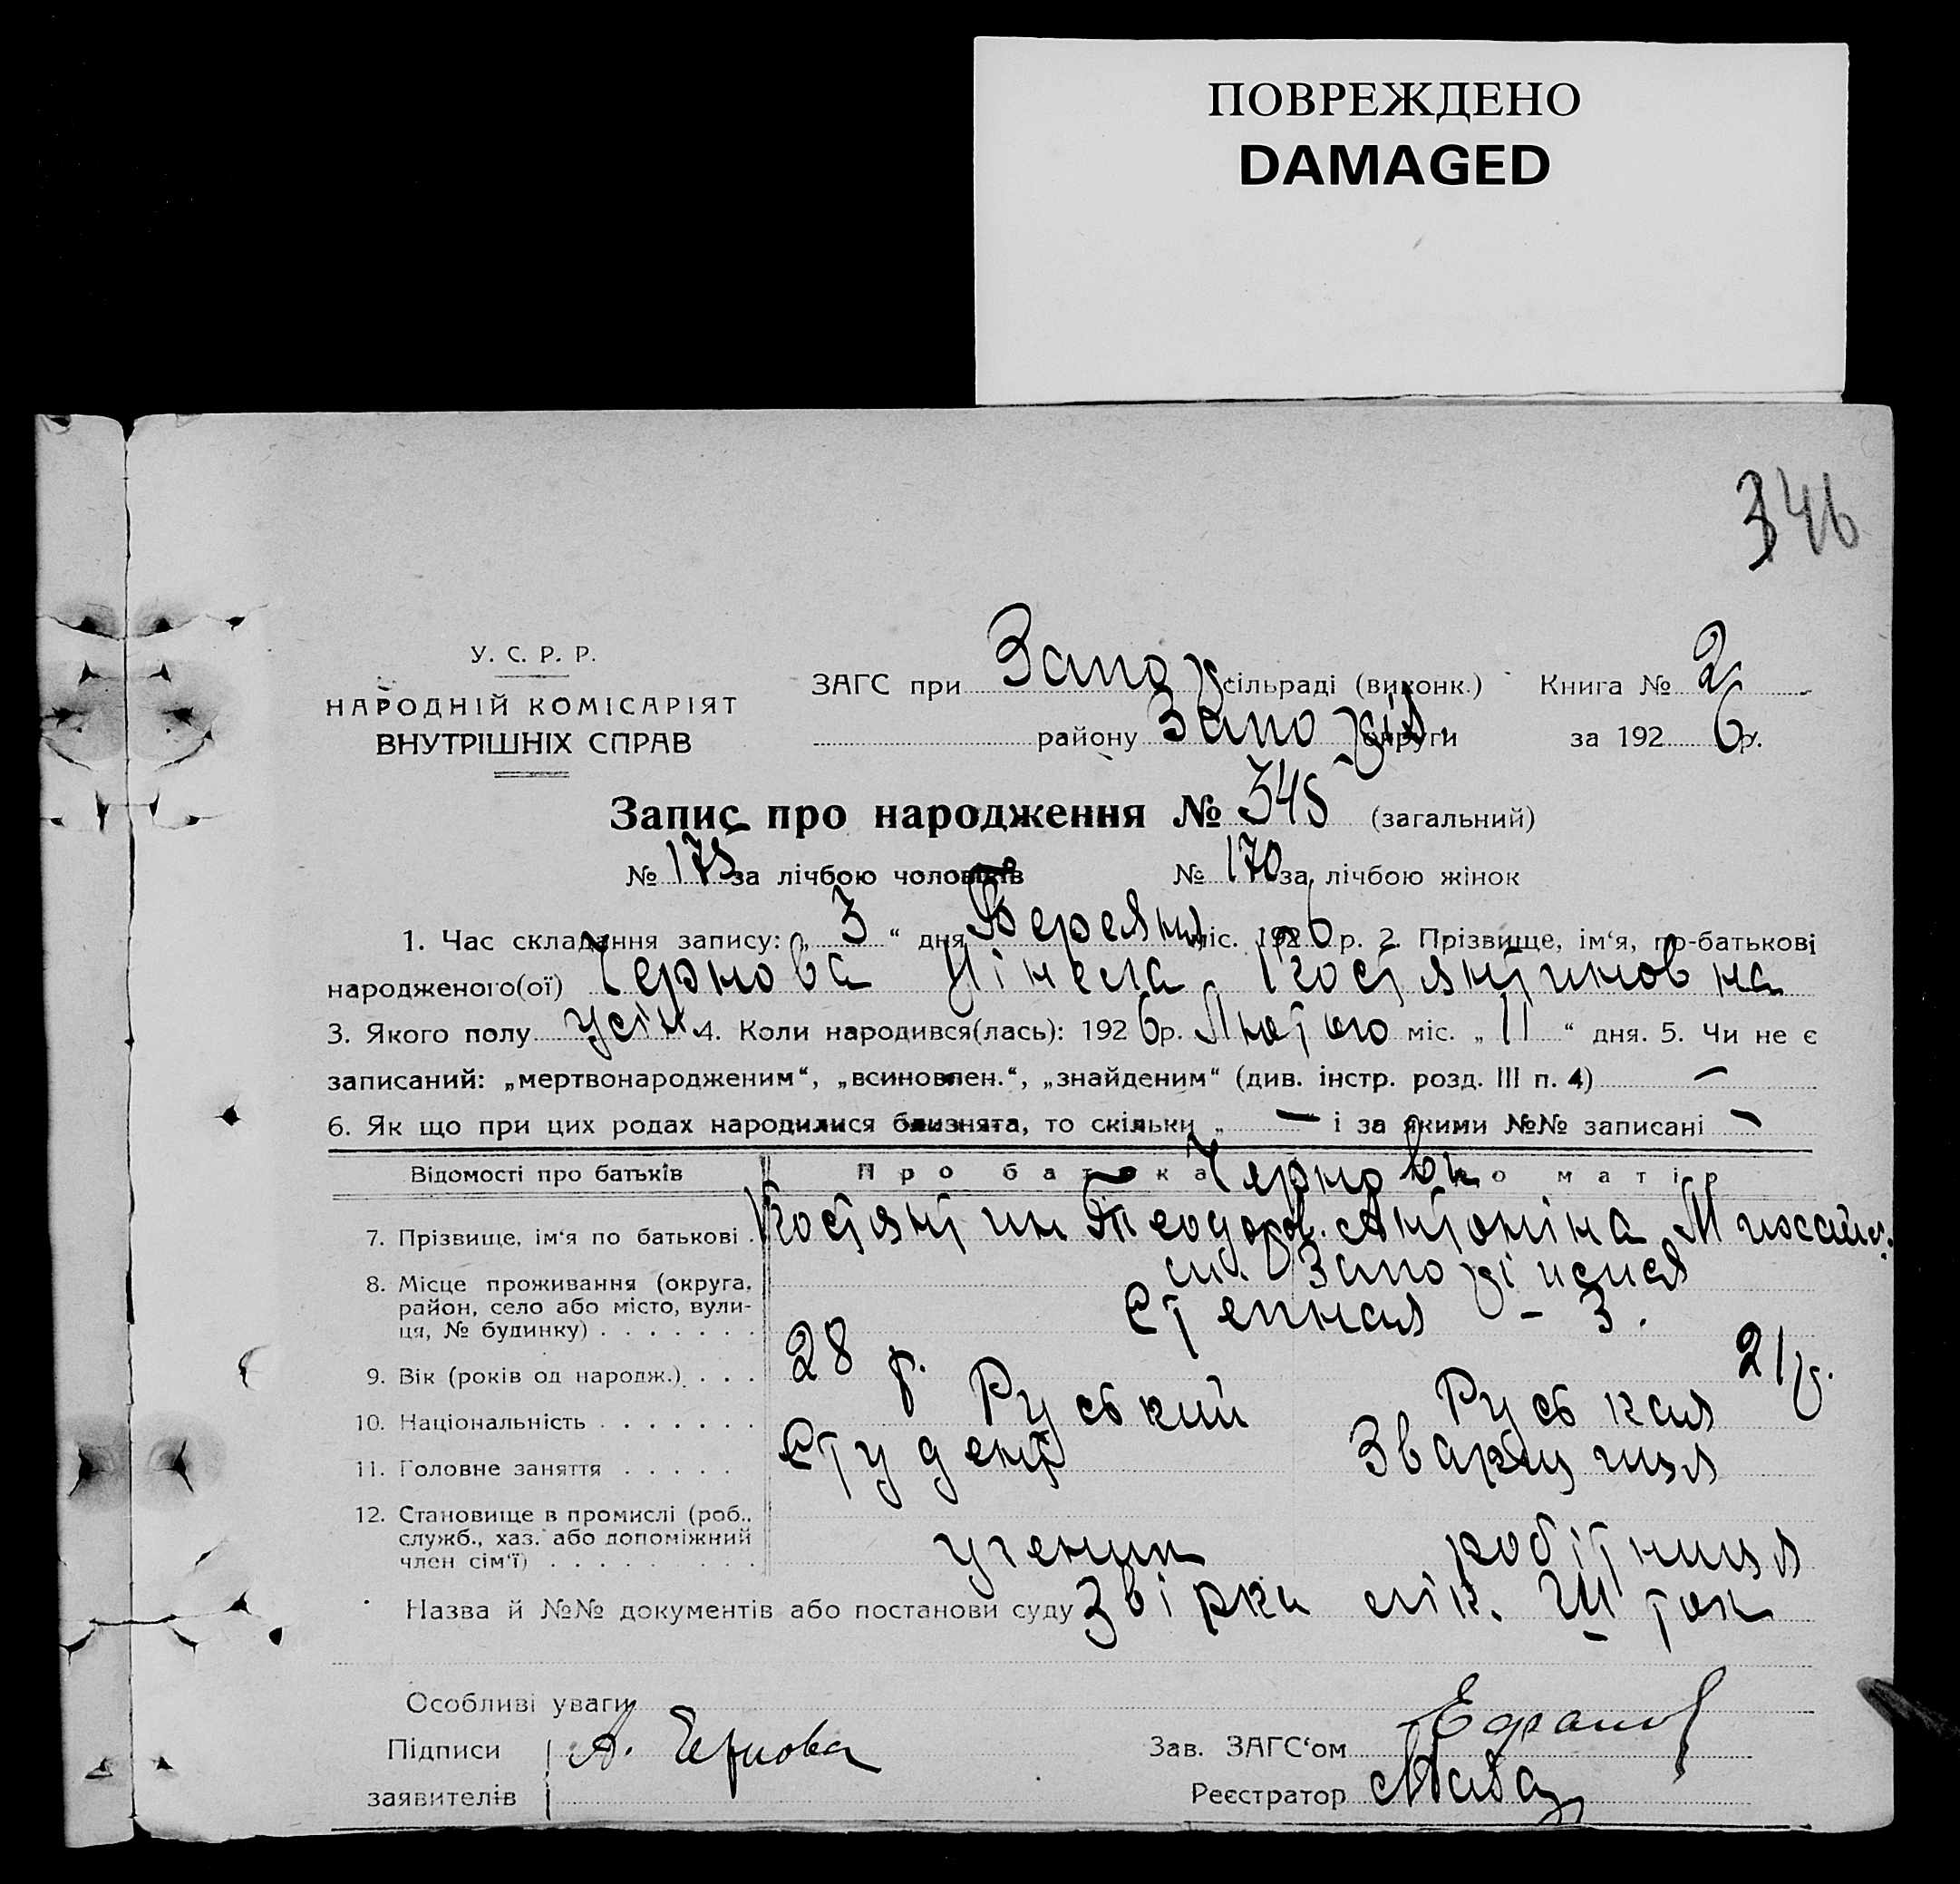 ПОВРЕЖДЕНО
DAMAGED
346
У. С. Р. Р.
НАРОДНІЙ КОМІСАРІЯТ
ВНУТРІШНІХ СПРАВ
ЗАГС при Запор сільраді (виконк.) Книга № 2
району Запоріз. округи за 192 6 р.
Запис про народження № 345 (загальний)
№ 175 за лічбою чоловіків № 170 за лічбою жінок
1. Час складання запису: „ 3 “ дня Березня міс. 192 6 р. 2. Прізвище, ім‘я, по-батькові
народженого(ої) Чернова Нінела Костянтиновна
3. Якого полу 4. Коли народився(лась): 192 6 р. Лютого міс. „ 11 “ дня. 5. Чи не є
записаний: „мертвонародженим“, „всиновлен.“, „знайденим“ (див. інстр. розд. III п. 4) —
6. Як що при цих родах народилися близнята, то скільки „ — і за якими №№ записані —
Відомості про батьків Про батька Чернови Про матір
7. Прізвище, ім‘я по батькові Костянтин Теодоров. Антоніна Михайл.
8. Місце проживання (округа, район, село або місто, вулиця, № будинку)
Степная - 3.
9. Вік (років од народж.) 28 р. 21 р.
10. Національність Руський Руськая
11. Головне заняття Студент
12. Становище в промислі (роб., служб., хаз. або допоміжний член сім‘ї) ученик робітниця
Назва й №№ документів або постанови суду Звірка лік.
Особливі уваги
Підписи заявителів А. Чернова
Зав. ЗАГС‘ом
Реєстратор